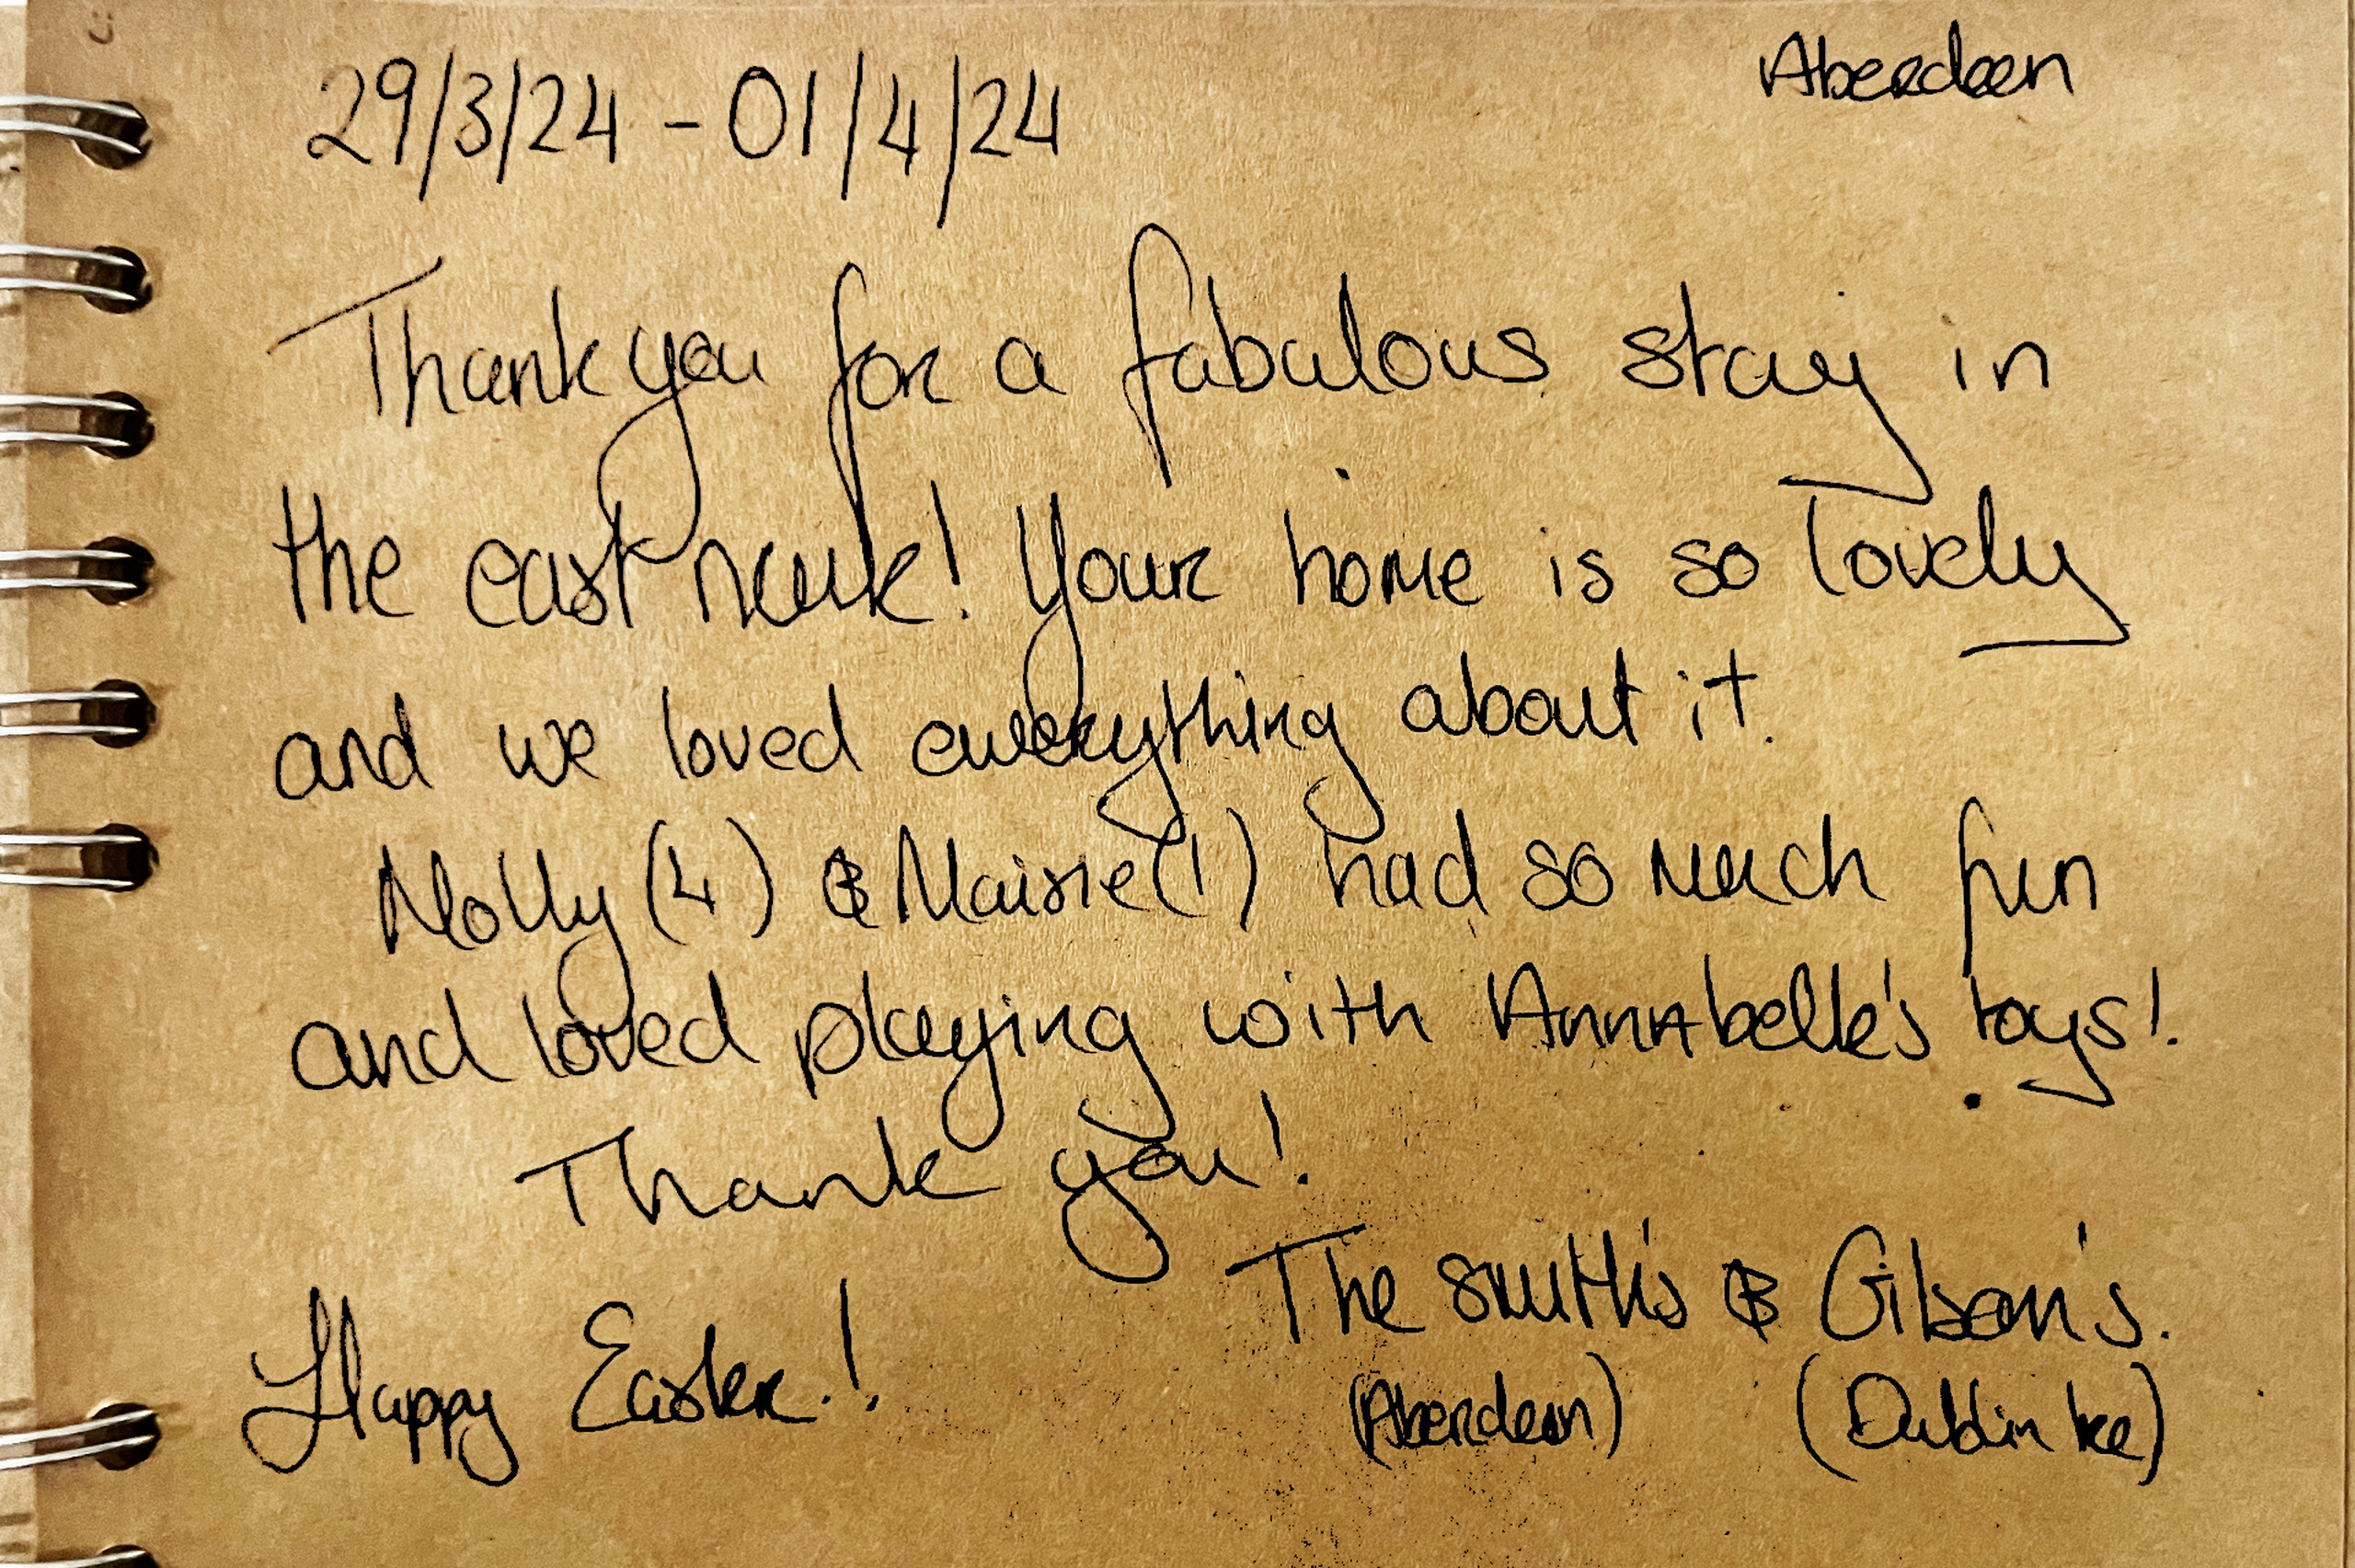 Aberdeen
29/3/24 - 01/4/24
Thank you for a fabulous stay in
the east neuk! Your home is so lovely
and we loved everything about it.
Molly (4) & Maisie (1) had so much fun
and loved playing with Annabelle's toys!
Thank you!
The Smith's & Gibson's.
Happy Easter!
(Aberdeen) (Dublin Ire)